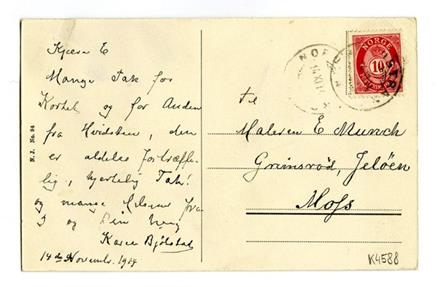 Kjære E
Mange Tak for
Kortet og for Anden
fra Hvidsten, den
er aldeles fortræffe-
lig, hjertelig Tak!
og mange hilsner fra
I og Din
Karen Bjølstad
14de Novembr. 1914
N. J. No. 94
NORGE
10
Te
Maleren E Munch
Grimsröd, Jelöen
Moss
K4588